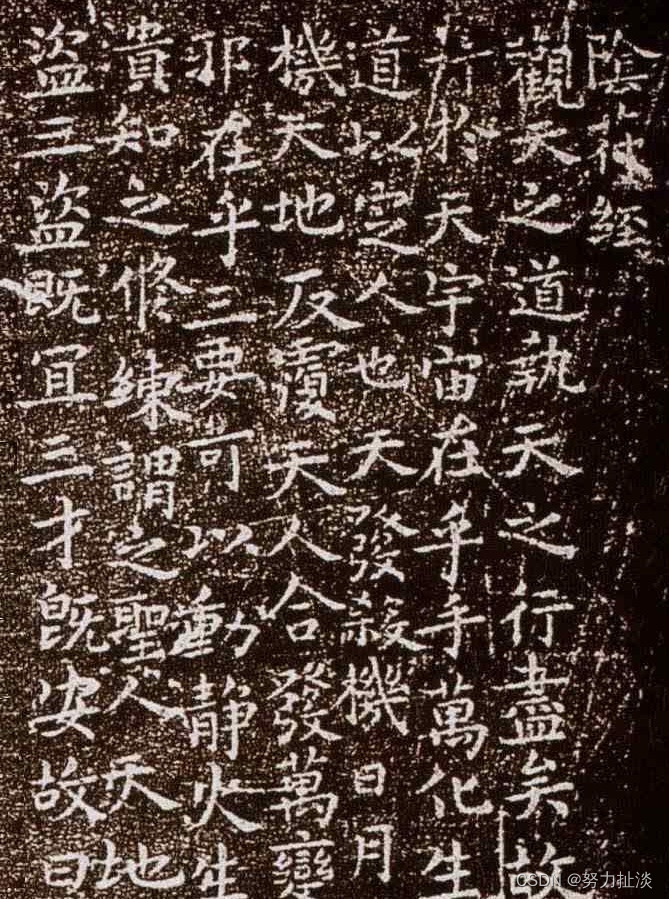 陰符經
觀天之道執天之行盡矣故
行於天宇宙在乎手萬化生
道以定人也天發殺機日月
機天地反覆天人合發萬變
邪在乎三要可以動靜火生
潰知之脩練謂之聖人天地
盜三盜既宜三才既安故曰
CSDN @努力扯淡